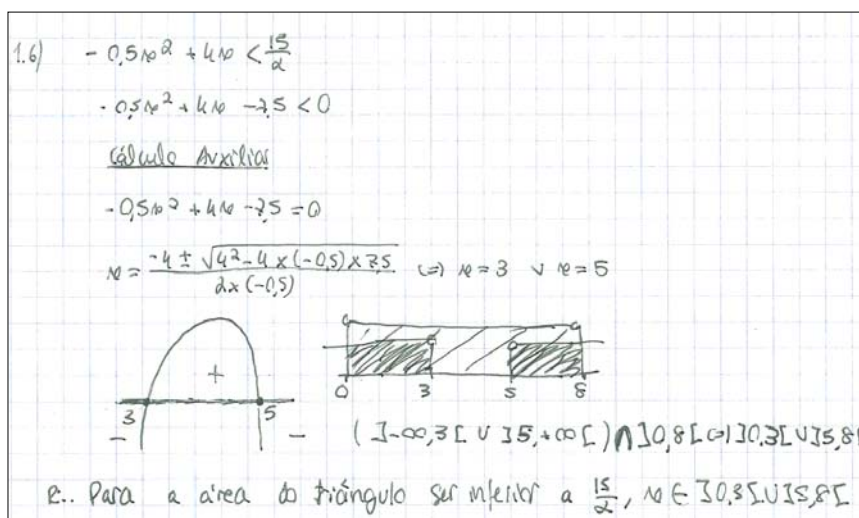 1.6) -0,5x² + 4x < 15/2
-0,5x² + 4x - 7,5 < 0
Cálculo Auxiliar
-0,5x² + 4x - 7,5 = 0
x = (-4 ± √(4² - 4 × (-0,5) × 7,5)) / (2 × (-0,5)) (=) x = 3 ∨ x = 5
+
3 5
- -
0 3 5 8
( ]-∞,3[ ∪ ]5,+∞[ ) ∩ ]0,8[ (=) ]0,3[ ∪ ]5,8[
R.: Para a área do triângulo ser inferior a 15/2, x ∈ ]0,3[ ∪ ]5,8[